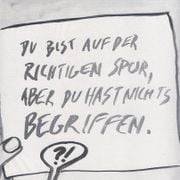 DU BIST AUF DER
RICHTIGEN SPUR,
ABER DU HAST NICHTS
BEGRIFFEN.
?!